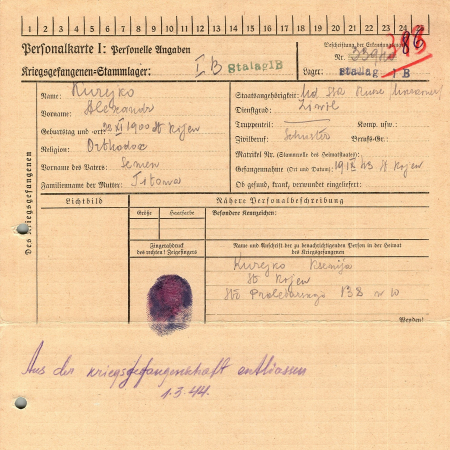 1 2 3 4 5 6 7 8 9 10 11 12 13 14 15 16 17 18 19 20 21 22 23 24 25
Personalkarte I: Personelle Angaben
Kriegsgefangenen-Stammlager: I B Stalag I B
Beschriftung der Erkennungsmarke
Nr.
Lager: Stalag I B
Des Kriegsgefangenen
Name: Kurejko
Vorname: Alexandr
Geburtstag und -ort: XI 1900 Kojen
Religion: Orthodox
Vorname des Vaters: Semen
Familienname der Mutter: Titowa
Staatsangehörigkeit:
Dienstgrad: Zivil
Truppenteil: Komp. usw.:
Zivilberuf: Schuster Berufs-Gr.:
Matrikel Nr. (Stammrolle des Heimatstaates):
Gefangennahme (Ort und Datum): 19 IX 43 Kojen
Ob gesund, krank, verwundet eingeliefert:
Lichtbild
Nähere Personalbeschreibung
Größe Haarfarbe Besondere Kennzeichen:
Fingerabdruck
des rechten! Zeigefingers
Name und Anschrift der zu benachrichtigenden Person in der Heimat
des Kriegsgefangenen
Kurejko Ksenija
Kojen
138
Wenden!
Aus der Kriegsgefangenschaft entlassen
1.3.44.